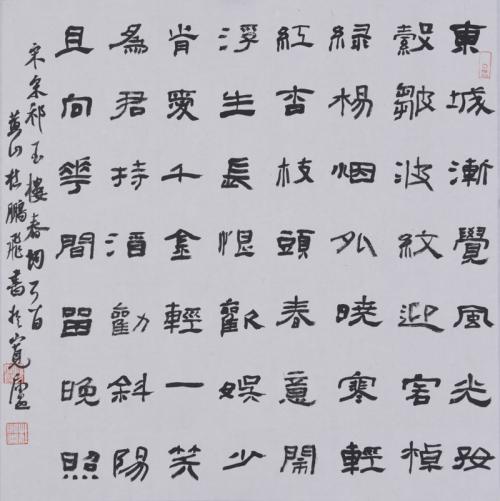 東城漸覺風光好
縠皺波紋迎客棹
綠楊烟外曉寒輕
紅杏枝頭春意鬧
浮生長恨歡娛少
肯愛千金輕一笑
為君持酒勸斜陽
且向華間留晚照
宋宋祁玉樓春詞乙首
黃山杜鵬飛書於寬廬